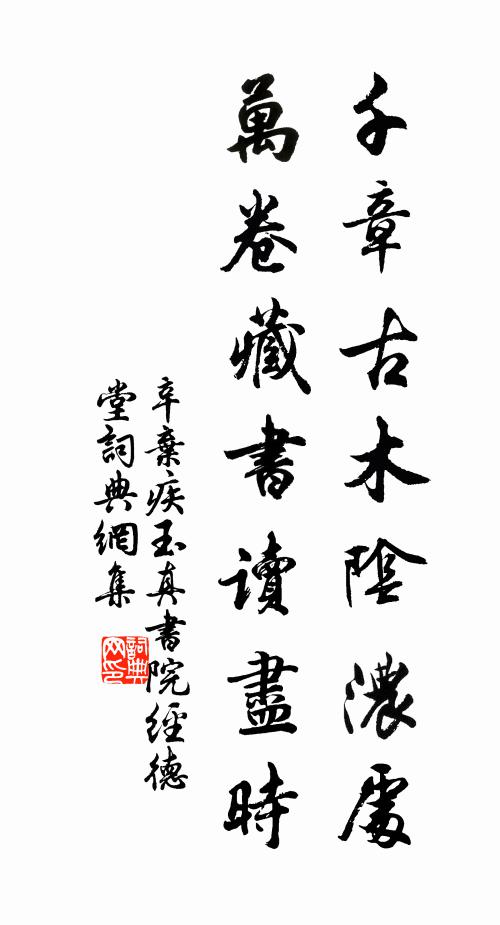 千章古木陰濃處
萬卷藏書讀盡時
辛棄疾玉真書院經德
堂詞典網集
詞典网印